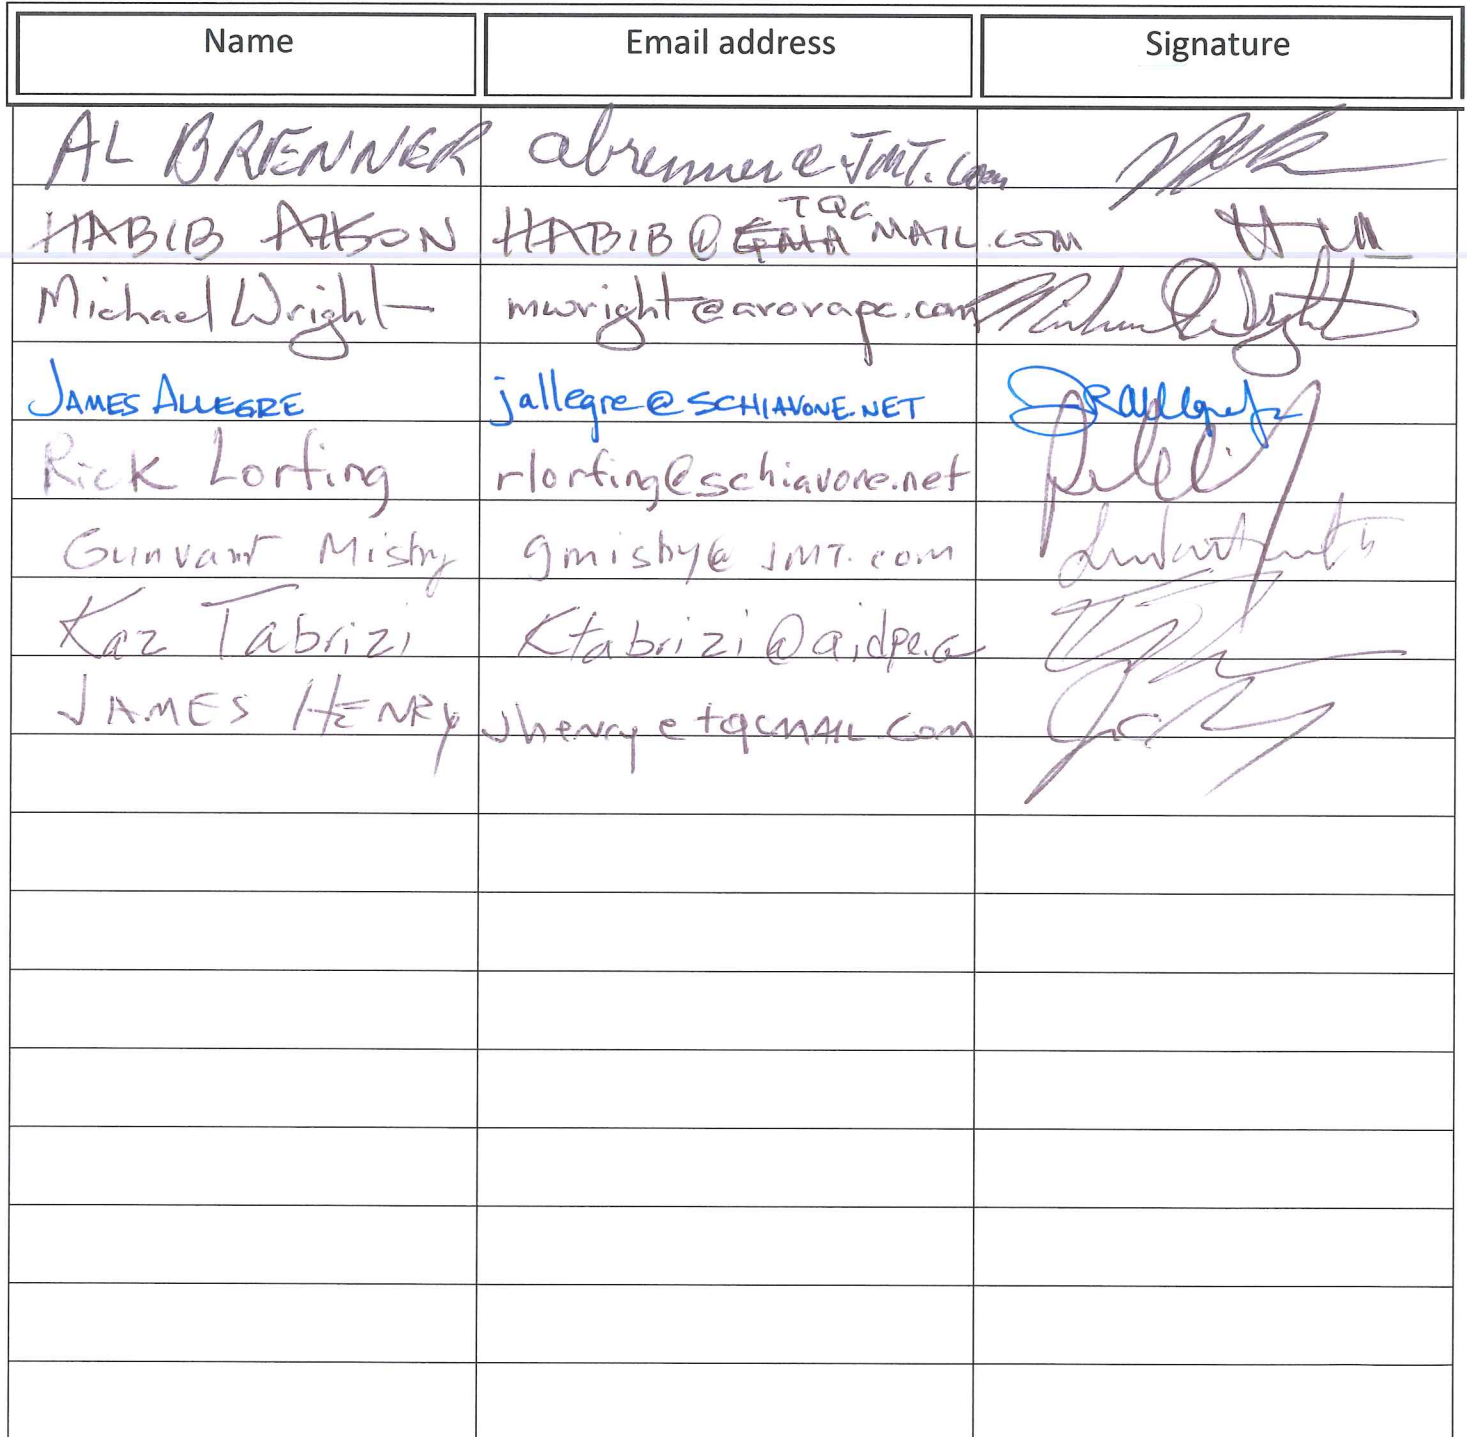 Name Email address Signature
AL BRENNER abrenner@JMT.com
HABIB HABIB@TQCMAIL.COM
Michael Wright mwright@arorapc.com
JAMES ALLEGRE jallegre@SCHIAVONE.NET
Rick Lorfing rlorfing@schiavone.net
Gunvant Mistry gmistry@JMT.com
Kaz Tabrizi
JAMES HENRY Jhenry@tqcMAIL.com